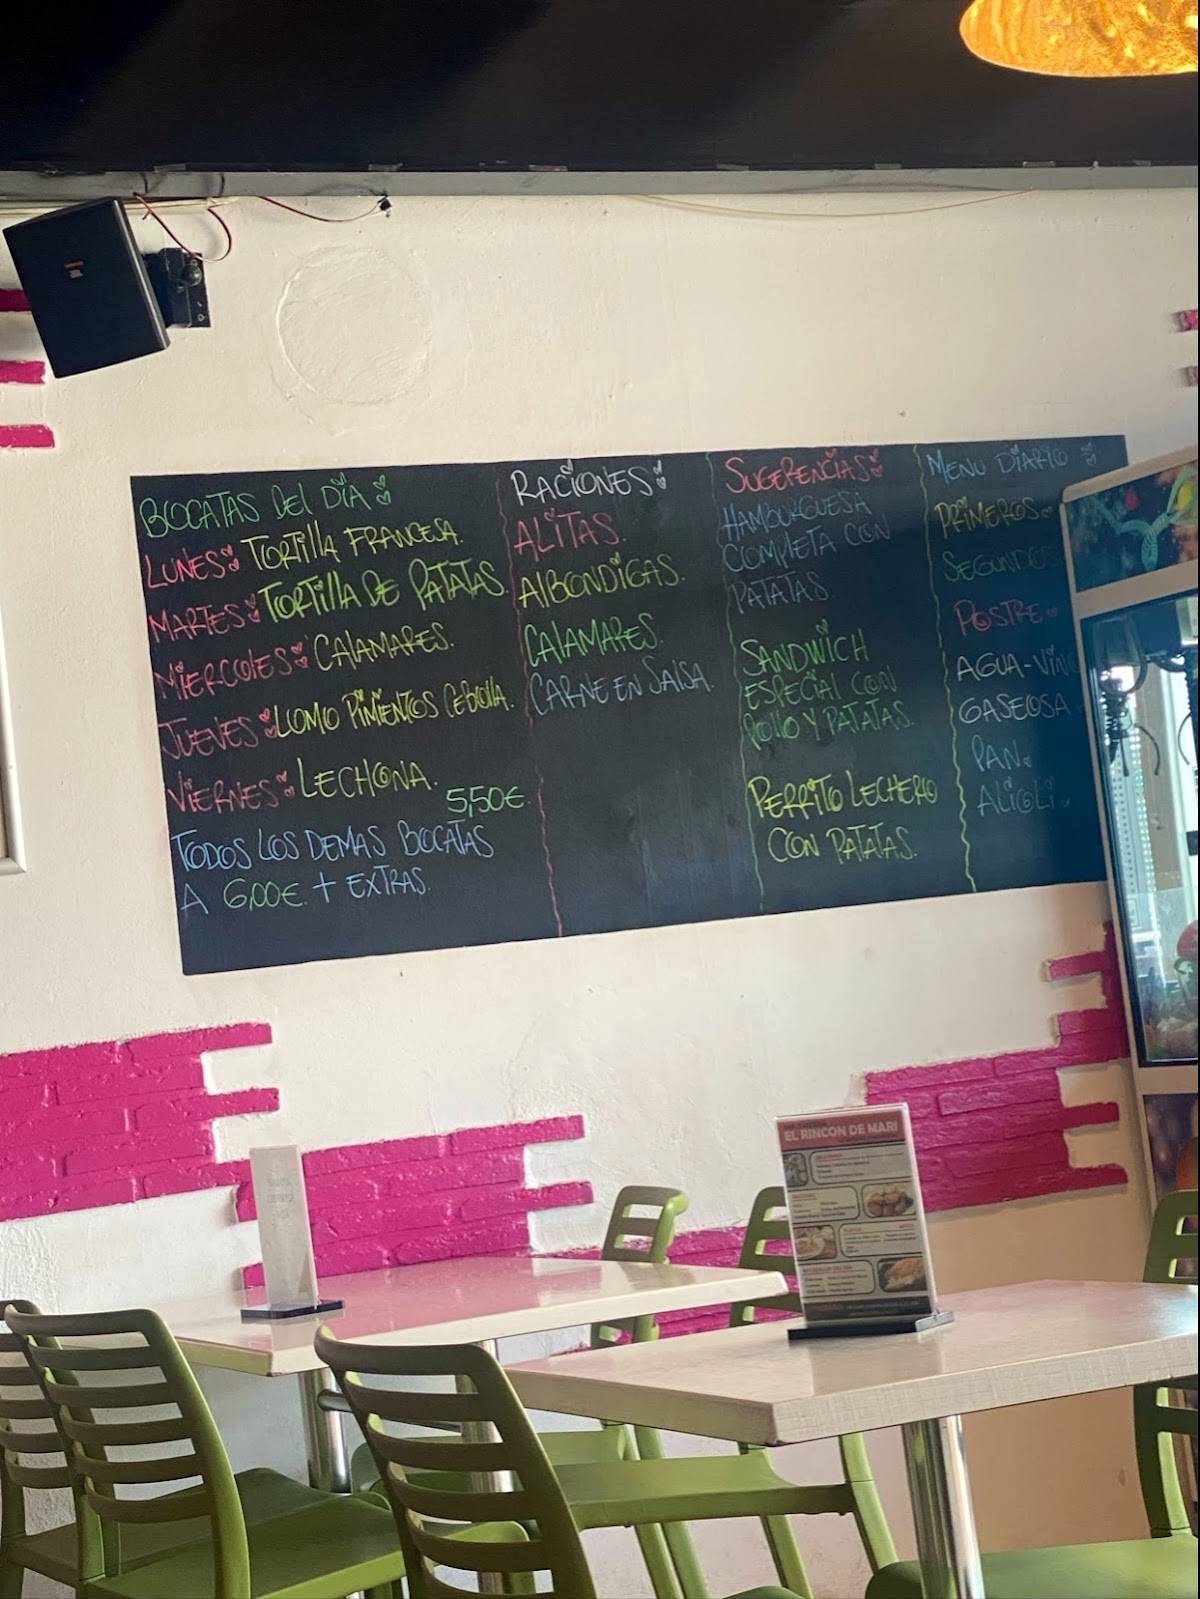 BOCATAS DEL DÍA
LUNES: TORTILLA FRANCESA.
MARTES: TORTILLA DE PATATAS.
MIERCOLES: CALAMARES.
JUEVES: LOMO PIMIENTOS CEBOLLA.
VIERNES: LECHONA.
5,50€.
TODOS LOS DEMAS BOCATAS
A 6,00€. + EXTRAS.
RACIONES:
ALITAS.
ALBONDIGAS.
CALAMARES.
CARNE EN SALSA.
SUGERENCIAS:
HAMBURGUESA
COMPLETA CON
PATATAS.
SANDWICH
ESPECIAL CON
POLLO Y PATATAS.
PERRITO LECHERO
CON PATATAS.
MENU DIARIO
PRIMEROS
SEGUNDOS
POSTRE
AGUA-VINO
GASEOSA
PAN.
ALIOLI.
EL RINCON DE MARI